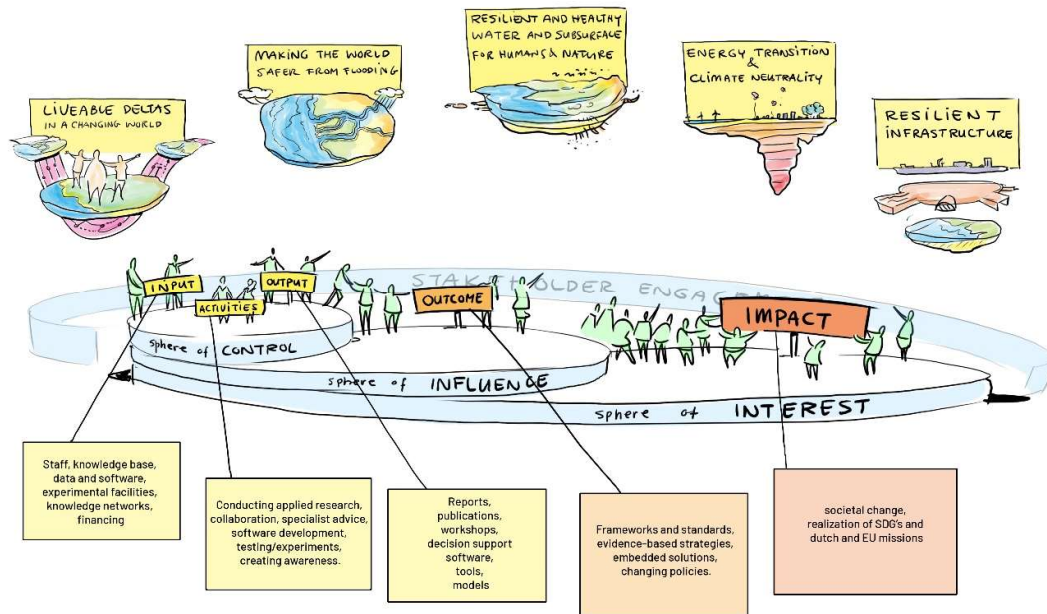 LIVEABLE DELTAS
IN A CHANGING WORLD
MAKING THE WORLD
SAFER FROM FLOODING
RESILIENT AND HEALTHY
WATER AND SUBSURFACE
FOR HUMANS & NATURE
ENERGY TRANSITION
&
CLIMATE NEUTRALITY
RESILIENT
INFRASTRUCTURE
STAKEHOLDER ENGAGEM
INPUT
ACTIVITIES
OUTPUT
OUTCOME
IMPACT
sphere of CONTROL
sphere of INFLUENCE
sphere of INTEREST
Staff, knowledge base,
data and software,
experimental facilities,
knowledge networks,
financing
Conducting applied research,
collaboration, specialist advice,
software development,
testing/experiments,
creating awareness.
Reports,
publications,
workshops,
decision support
software,
tools,
models
Frameworks and standards,
evidence-based strategies,
embedded solutions,
changing policies.
societal change,
realization of SDG's and
dutch and EU missions